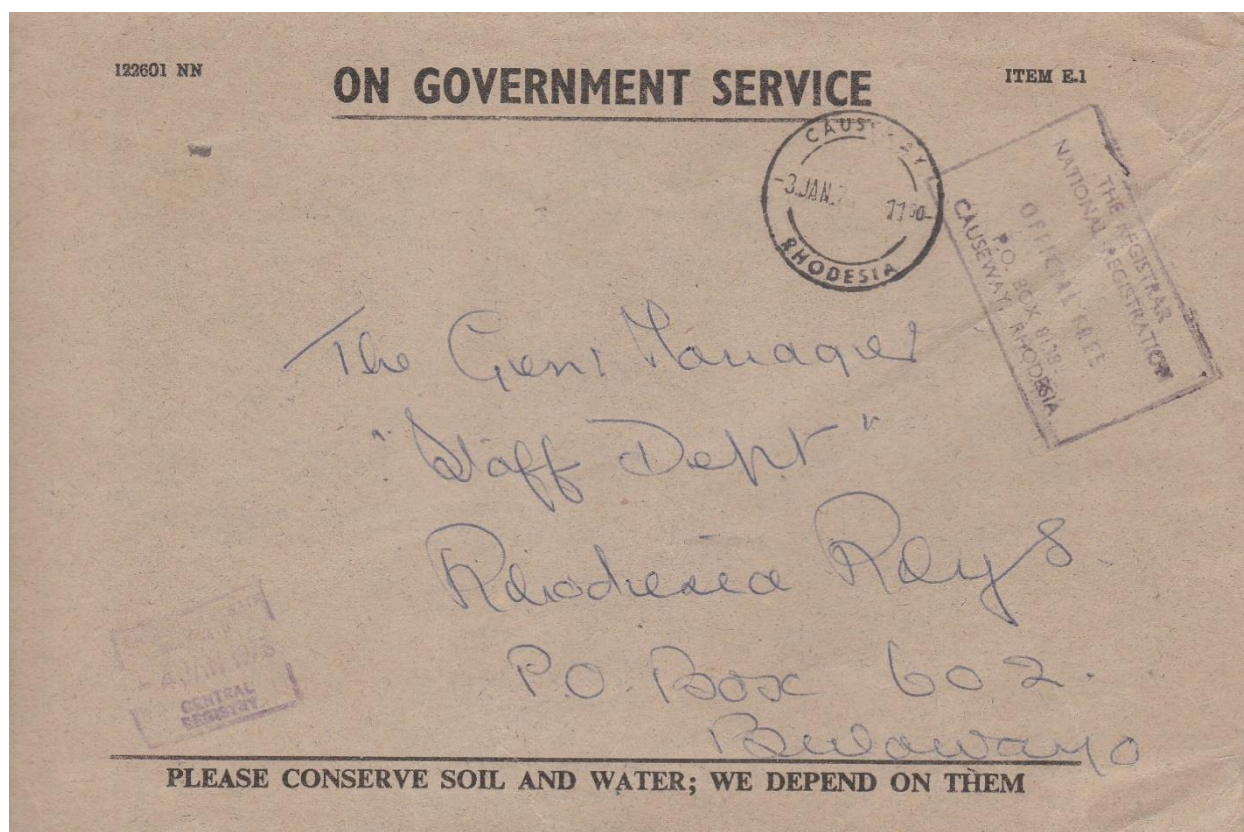 122601 NN
ON GOVERNMENT SERVICE
ITEM E.1
CAUSEWAY
-3.JAN.7
RHODESIA
THE REGISTRAR
NATIONAL REGISTRATION
OFFICIAL FREE
P.O. BOX 8138
CAUSEWAY, RHODESIA
The Genl Manager
"Staff Dept"
Rhodesia Rlys
P.O. Box 602.
Bulawayo
4 JAN 1978
CENTRAL
REGISTRY
PLEASE CONSERVE SOIL AND WATER; WE DEPEND ON THEM